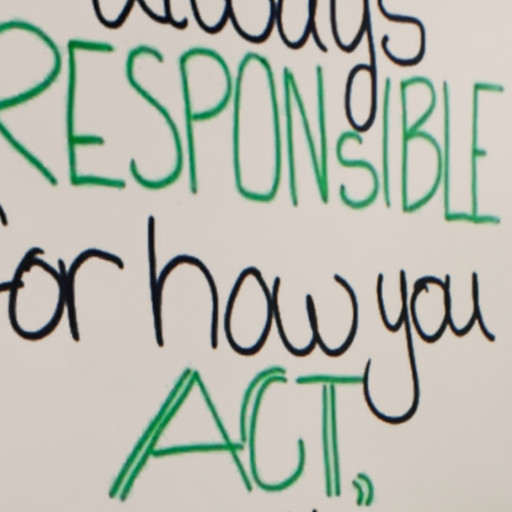 always
RESPONSIBLE
for how you
ACT."